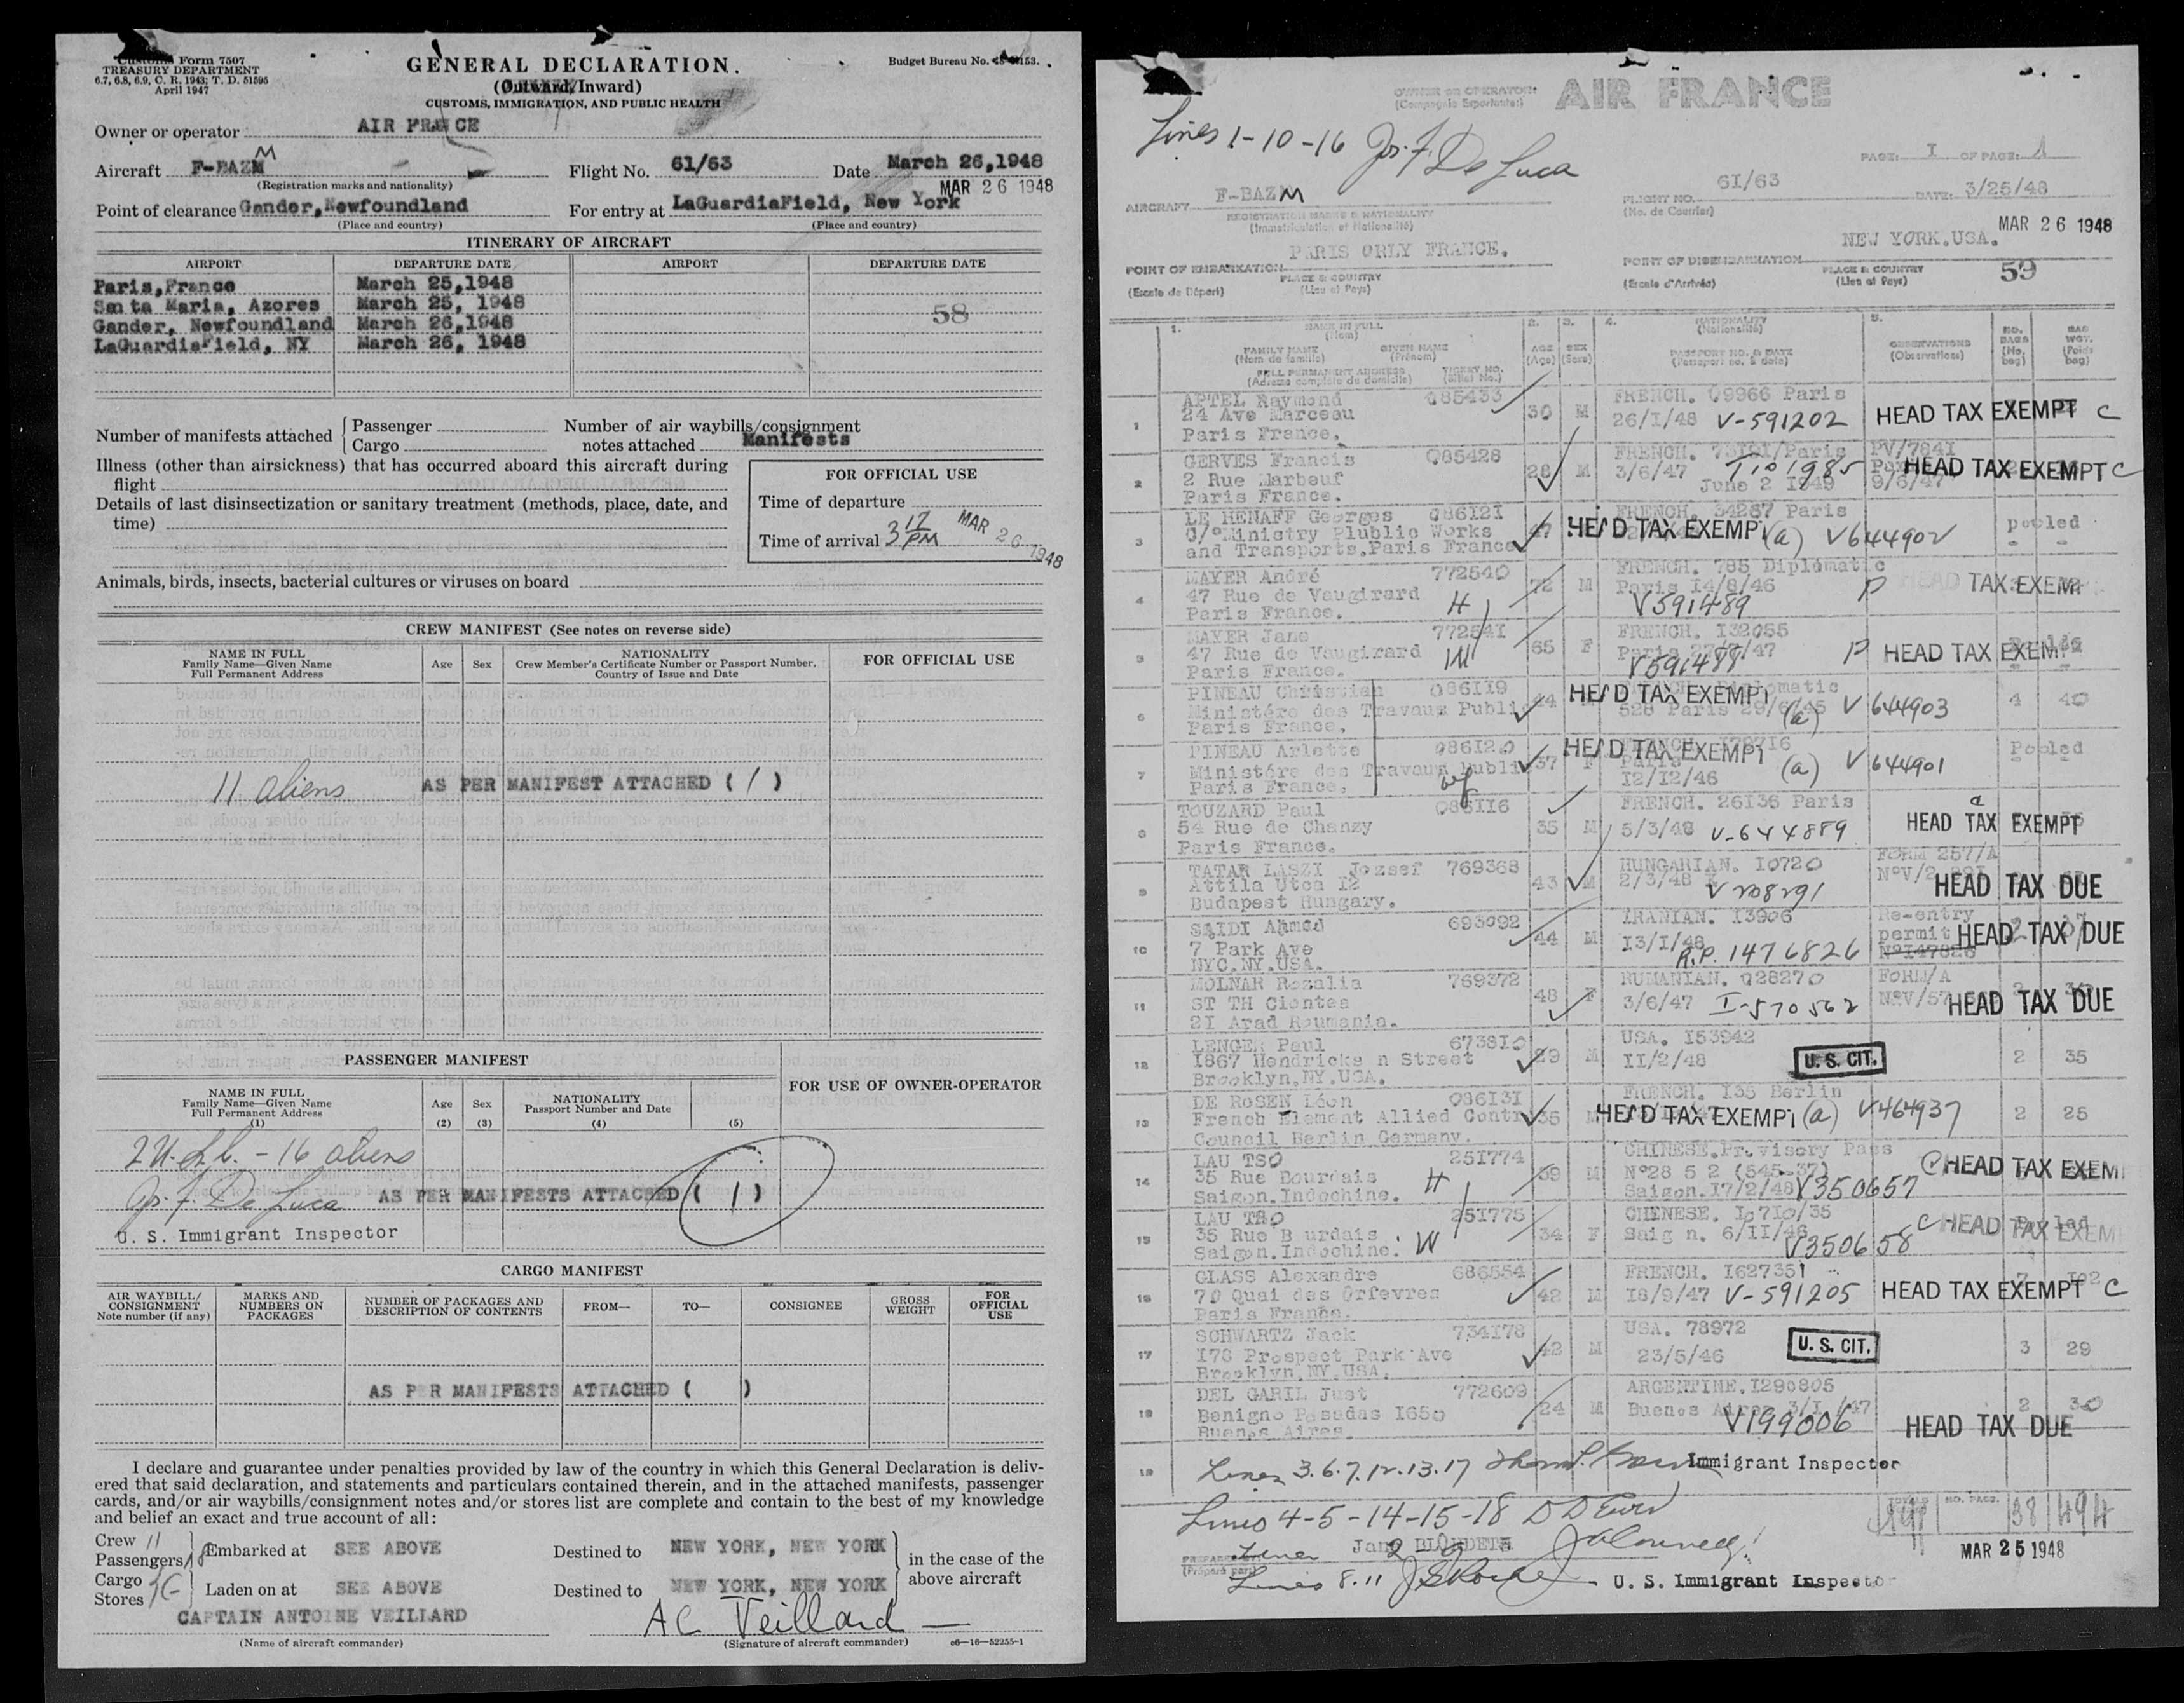 Customs Form 7507
TREASURY DEPARTMENT
6.7, 6.8, 6.9, C. R. 1943; T. D. 51595
April 1947
GENERAL DECLARATION
(Outward/Inward)
CUSTOMS, IMMIGRATION, AND PUBLIC HEALTH
Budget Bureau No.
Owner or operator AIR FRANCE
Aircraft F-BAZM
M
(Registration marks and nationality)
Flight No. 61/63
Date March 26,1948
MAR 26 1948
Point of clearance Gander, Newfoundland
(Place and country)
For entry at LaGuardiaField, New York
(Place and country)
ITINERARY OF AIRCRAFT
AIRPORT DEPARTURE DATE AIRPORT DEPARTURE DATE
Paris,France March 25,1948
Santa Maria, Azores March 25, 1948
58
Gander, Newfoundland March 26,1948
LaGuardiaField, NY March 26, 1948
Number of manifests attached
Passenger
Cargo
Number of air waybills/consignment
notes attached Manifests
Illness (other than airsickness) that has occurred aboard this aircraft during
flight
Details of last disinsectization or sanitary treatment (methods, place, date, and
time)
FOR OFFICIAL USE
Time of departure
Time of arrival 3 17 PM MAR 26 1948
Animals, birds, insects, bacterial cultures or viruses on board
CREW MANIFEST (See notes on reverse side)
NAME IN FULL
Family Name—Given Name
Full Permanent Address
Age
Sex
NATIONALITY
Crew Member's Certificate Number or Passport Number,
Country of Issue and Date
FOR OFFICIAL USE
11 aliens AS PER MANIFEST ATTACHED ( 1 )
PASSENGER MANIFEST
NAME IN FULL
Family Name—Given Name
Full Permanent Address
(1)
Age
(2)
Sex
(3)
NATIONALITY
Passport Number and Date
(4)
(5)
FOR USE OF OWNER-OPERATOR
16 aliens
Jos. F. De Luca AS PER MANIFESTS ATTACHED ( 1 )
U. S. Immigrant Inspector
CARGO MANIFEST
AIR WAYBILL/
CONSIGNMENT
Note number (if any)
MARKS AND
NUMBERS ON
PACKAGES
NUMBER OF PACKAGES AND
DESCRIPTION OF CONTENTS
FROM—
TO—
CONSIGNEE
GROSS
WEIGHT
FOR
OFFICIAL
USE
AS PER MANIFESTS ATTACHED ( )
I declare and guarantee under penalties provided by law of the country in which this General Declaration is deliv-
ered that said declaration, and statements and particulars contained therein, and in the attached manifests, passenger
cards, and/or air waybills/consignment notes and/or stores list are complete and contain to the best of my knowledge
and belief an exact and true account of all:
Crew 11
Passengers 18
Embarked at SEE ABOVE Destined to NEW YORK, NEW YORK
Cargo
Stores
Laden on at SEE ABOVE Destined to NEW YORK, NEW YORK
in the case of the
above aircraft
CAPTAIN ANTOINE VEILLARD
(Name of aircraft commander)
AC Veillard
(Signature of aircraft commander)
c6—16—52255-1
OWNER OR OPERATOR:
AIR FRANCE
Lines 1-10-16 Jos. F. De Luca
PAGE: I OF PAGE: 1
AIRCRAFT F-BAZM
REGISTRATION MARKS & NATIONALITY
(Immatriculation et Nationalité)
FLIGHT NO. 6I/63
(No. de Courrier)
DATE: 3/25/48
MAR 26 1948
PARIS ORLY FRANCE.
POINT OF EMBARKATION
PLACE & COUNTRY
(Escale de Départ)
(Lieu et Pays)
NEW YORK.USA.
POINT OF DISEMBARKATION
PLACE & COUNTRY
(Escale d'Arrivée)
(Lieu et Pays)
59
1.
NAME IN FULL
(Nom)
FAMILY NAME
(Nom de famille)
GIVEN NAME
(Prénom)
FULL PERMANENT ADDRESS
(Adresse complète du domicile)
TICKET NO.
(Billet No.)
2.
AGE
(Age)
3.
SEX
(Sexe)
4.
NATIONALITY
(Nationalité)
PASSPORT NO. & DATE
(Passeport no. & date)
5.
OBSERVATIONS
(Observations)
NO.
BAGS
(No.
bag)
BAG
WGT.
(Poids
bag)
1 APTEL Raymond 085433 30 M FRENCH. 09966 Paris
24 Ave Marceau 26/I/48 V-591202 HEAD TAX EXEMPT C
Paris France.
2 GERVES Francis 085428 28 M FRENCH. Paris PV/784I
2 Rue Marbeuf 3/6/47 T101985 HEAD TAX EXEMPT C
Paris France. June 2 1949 9/6/47
3 LE HENAFF Georges 086I2I 47 FRENCH. 34267 Paris
C/° Ministry Plublic Works HEAD TAX EXEMPT (a) V644902 pooled
and Transports.Paris France
4 MAYER André 772540 72 M FRENCH. 785 Diplomatic
47 Rue de Vaugirard H Paris I4/8/46 P HEAD TAX EXEM
Paris France. V591489
5 MAYER Jane 77254I 65 F FRENCH. I32055
47 Rue de Vaugirard W V591488 P HEAD TAX EXEMPT
Paris France.
6 PINEAU Christian 086II9 44 HEAD TAX EXEMPT
Ministére des Travaux Public 528 Paris 29/6/45 (a) V644903 4 40
Paris France.
7 PINEAU Arlette 086I20 37 F HEAD TAX EXEMPT
Ministére des Travaux Public wf Paris (a) V644901 Pooled
Paris France. I2/I2/46
8 TOUZARD Paul 086II6 35 M FRENCH. 26I36 Paris
54 Rue de Chanzy 5/3/48 V-644889 a HEAD TAX EXEMPT
Paris France.
9 TATAR LASZI Jozsef 769368 43 M HUNGARIAN. I0720 FORM 257/A
Attila Utca I2 2/3/48 HEAD TAX DUE
Budapest Hungary.
10 SAIDI Ahmed 693092 44 M IRANIAN. I3906 Re-entry
7 Park Ave I3/I/48 permit HEAD TAX DUE
NYC.NY.USA. R.P. 1476826
11 MOLNAR Rozalia 769372 48 F RUMANIAN. 028270 FORM/A
ST TH Cientea 3/6/47 I-570562 HEAD TAX DUE
2I Arad Roumania.
12 LENGER Paul 6738I0 29 M USA. I53942
I867 Hendricks n Street II/2/48 U. S. CIT. 2 35
Brooklyn.NY.USA.
13 DE ROSEN Léon 086I3I 35 M FRENCH. I35 Berlin
French Element Allied Contr HEAD TAX EXEMPT (a) V464937 2 25
Council Berlin Germany.
14 LAU TSO 25I774 39 M CHINESE.Provisory Pass
35 Rue Bourdais H N°28 5 2 (545-37) C HEAD TAX EXEM
Saigon.Indochine. Saigon.I7/2/48 V350657
15 LAU TSO 25I775 34 F CHINESE.
35 Rue B urdais W Saig n. 6/II/48 C HEAD TAX EXEM
Saigon.Indochine. V350658
16 GLASS Alexandre 686554 42 M FRENCH. I62735I
70 Quai des Orfevres I8/9/47 V-591205 HEAD TAX EXEMPT C
Paris France.
17 SCHWARTZ Jack 734I78 42 M USA. 78972
I78 Prospect Park Ave 23/5/46 U. S. CIT. 3 29
Brooklyn.NY.USA.
18 DEL GARIL Just 772609 24 M ARGENTINE.I290805 2 30
Benigno Posadas I650 Buenos Aires
Buenos Aires. V199006 HEAD TAX DUE
19 Lines 3.6.7.12.13.17 Immigrant Inspector
Lines 4-5-14-15-18
38 494
MAR 25 1948
Lines 8.11 U. S. Immigrant Inspector